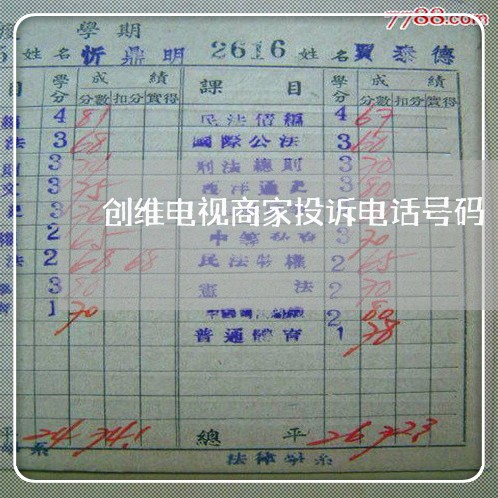 7788.com
學期
姓名忻鼎明 2616 姓名賈泰德
目 學分 成績 課目 學分 成績
分數 扣分 實得 分數 扣分 實得
4 81 民法債編 4 67
法 3 68 國際公法 3 60
3 刑法總則 3 70
3 75 西洋通史 3 80
創维电视商家投诉电话号码
2 65 3 70
法 2 68 68 民法物權 2 65
3 80 憲法 2 70
1 70 2 80
普通體育 1 78
平 24 74.1 總平 26 72.3
系 法律學系